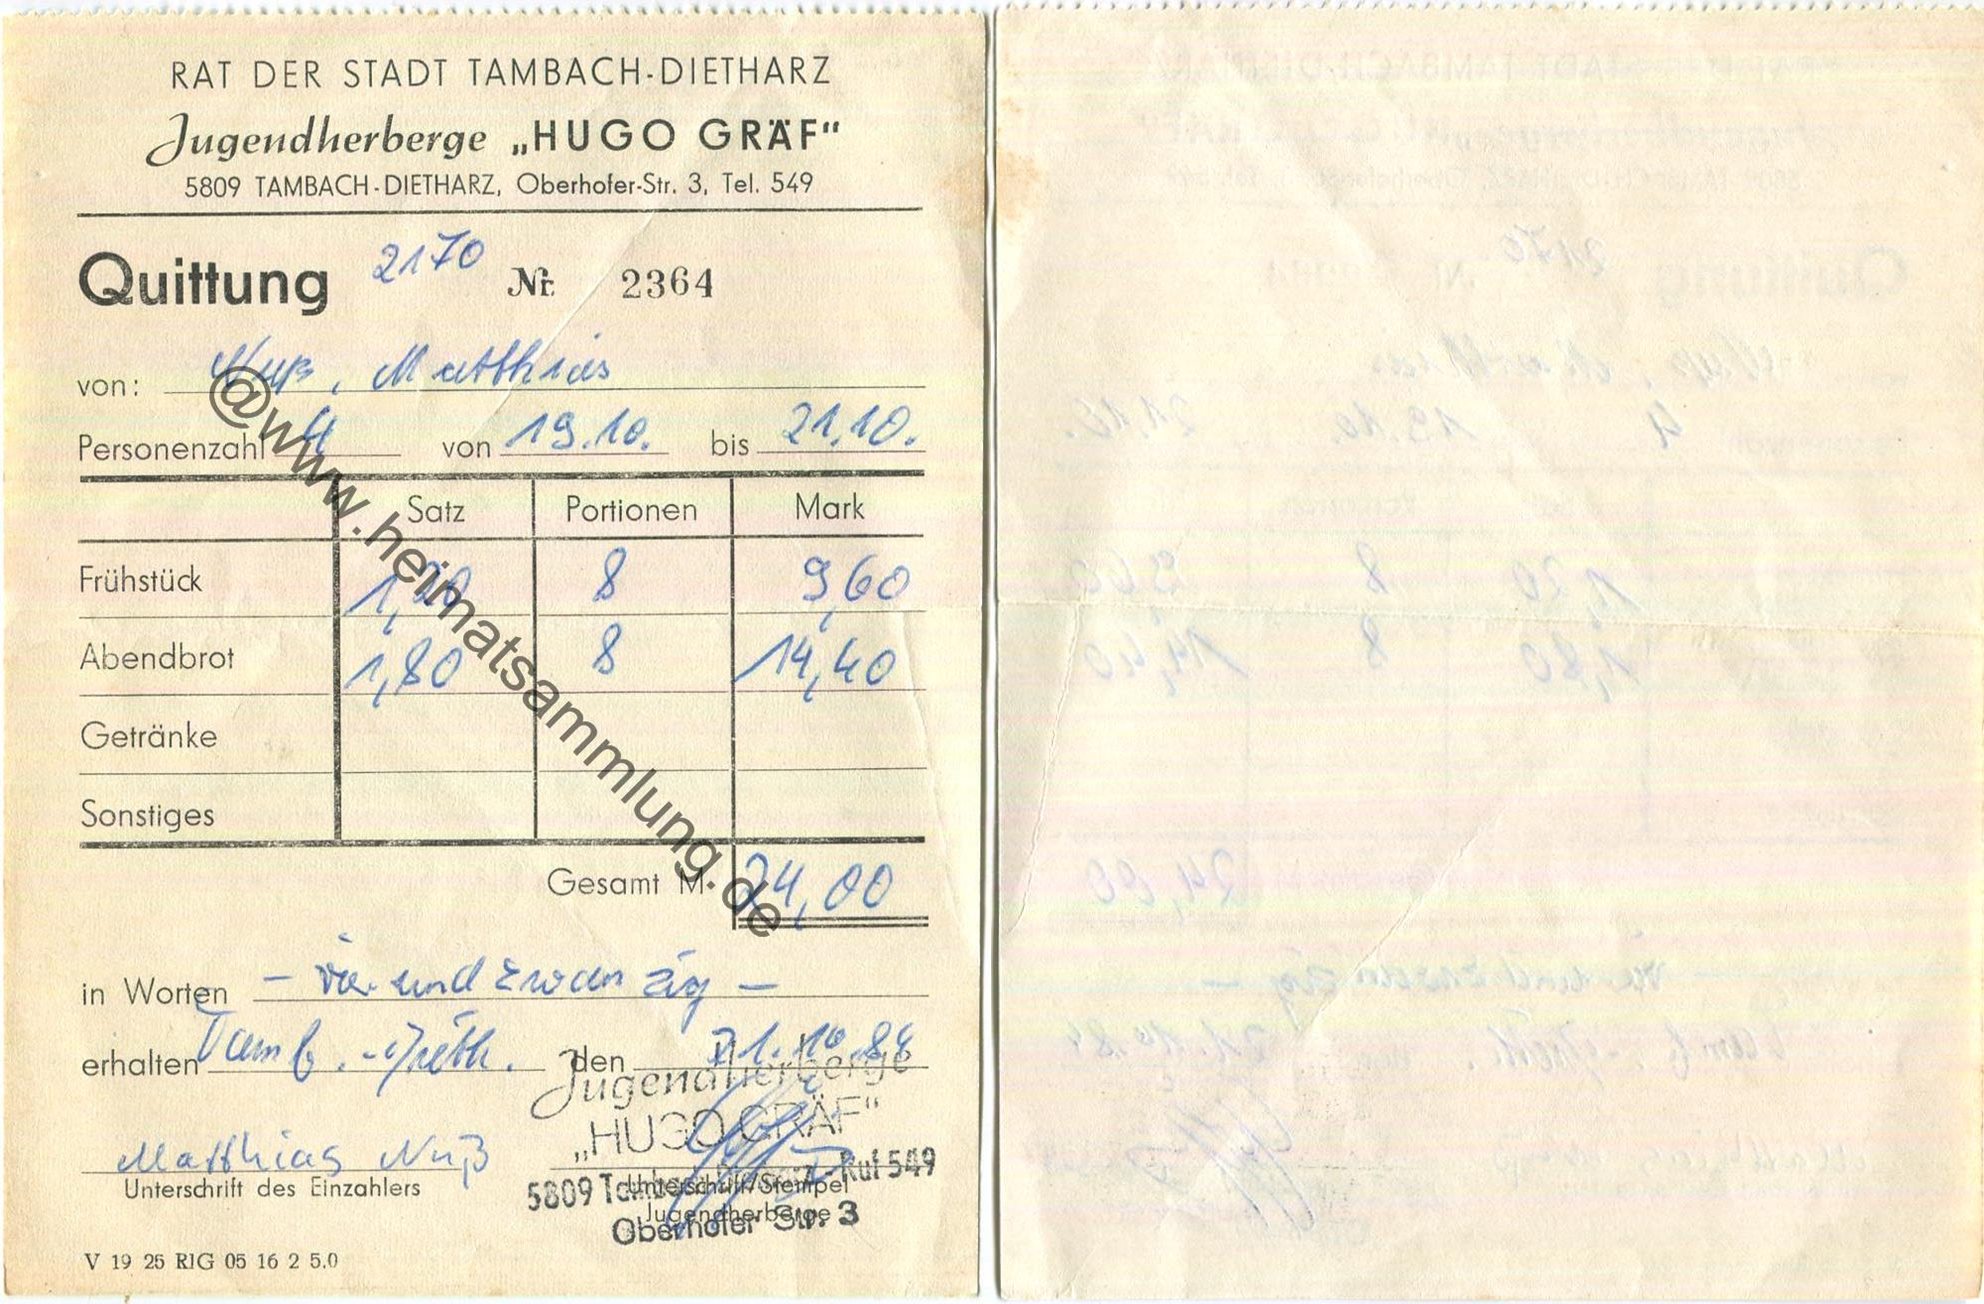 RAT DER STADT TAMBACH-DIETHARZ
Jugendherberge „HUGO GRÄF“
5809 TAMBACH-DIETHARZ, Oberhofer-Str. 3, Tel. 549
Quittung 2170 Nr. 2364
von: Nuß, Matthias
Personenzahl 4 von 19.10. bis 21.10.
Satz Portionen Mark
Frühstück 1,20 8 9,60
Abendbrot 1,80 8 14,40
Getränke
Sonstiges
Gesamt M. 24,00
in Worten – vierundzwanzig –
erhalten Tamb.-Dieth. den 21.10.84
Jugendherberge
„HUGO GRÄF“
Matthias Nuß
Unterschrift des Einzahlers
5809 Tambach-Dietharz - Ruf 549
Unterschrift/Stempel
Jugendherberge
Oberhofer Str. 3
V 19 25 RIG 05 16 2 5.0
@www.heimatsammlung.de